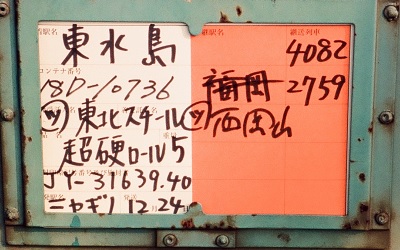 着駅名
継駅名
継送列車
東水島
4082
コンテナ番号
18D-10736
福岡 2759
ツ 東北スチール ツ 西岡山
品名
超硬ロール5
JY-31639.40
ニヤギノ 12.24